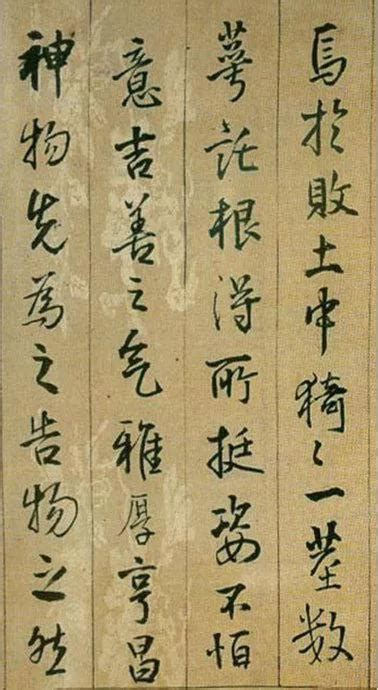 焉於敗土中猗〻一莖数
萼託根得所挺姿不怕
意吉善之氣雅厚亨昌
神物先為之告物之然